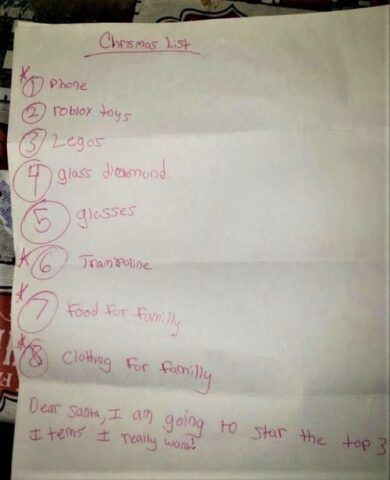 Chrismas List
* 1 Phone
2 roblox toys
3 Legos
4 glass dieamond
5 glasses
* 6 Trampoline
* 7 Food For Familly
* 8 Clothing For Familly
Dear Santa, I am going to star the top 3
Items I really want!